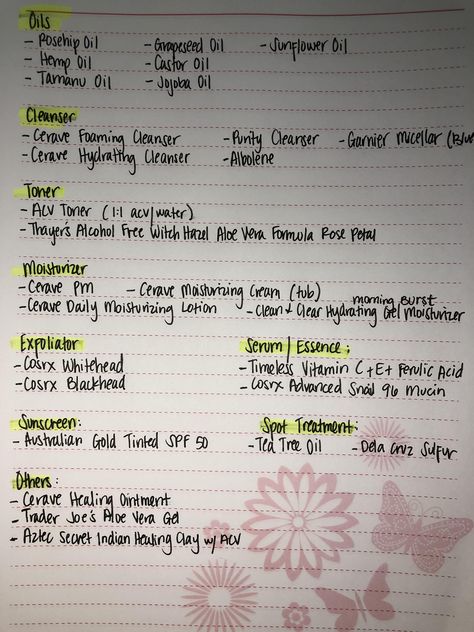 Oils
- Rosehip Oil - Grapeseed Oil - Sunflower Oil
- Hemp Oil - Castor Oil
- Tamanu Oil - Jojoba Oil
Cleanser
- Cerave Foaming Cleanser - Purity Cleanser - Garnier Micellar (Blue
- Cerave Hydrating Cleanser - Albolene
Toner
- ACV Toner (1:1 acv/water)
- Thayer's Alcohol Free Witch Hazel Aloe Vera Formula Rose Petal
Moisturizer
- Cerave PM - Cerave Moisturizing Cream (tub)
- Cerave Daily Moisturizing Lotion - Clean + Clear morning burst Hydrating Gel Moisturizer
Exfoliator Serum/Essence:
- Cosrx Whitehead - Timeless Vitamin C+E+ Ferulic Acid
- Cosrx Blackhead - Cosrx Advanced Snail 96 Mucin
Sunscreen: Spot Treatment:
- Australian Gold Tinted SPF 50 - Tea Tree Oil - Dela Cruz Sulfur
Others:
- Cerave Healing Ointment
- Trader Joe's Aloe Vera Gel
- Aztec Secret Indian Healing Clay w/ ACV